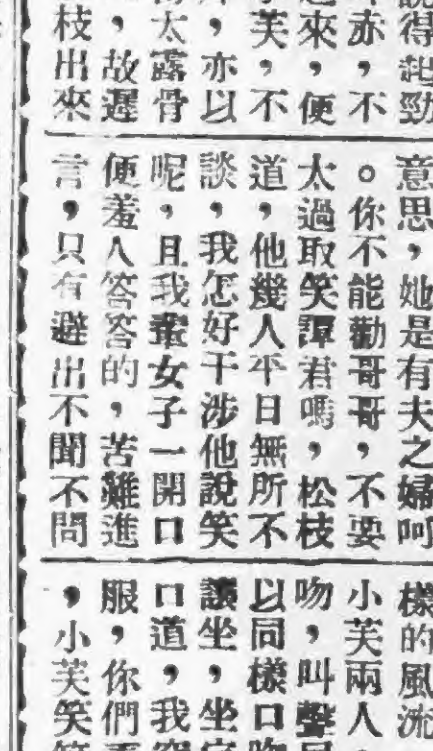 說得起勁
赤，不
來，便
芙，不
，亦以
太露骨
，故遲
枝出來
意思，她是有夫之婦呵
。你不能勸哥哥，不要
太過取笑譚君嗎，松枝
道，他幾人平日無所不
談，我怎好干涉他說笑
呢，且我輩女子一開口
便羞人答答的，苦難進
言，只有避出不聞不問
樣的風流
小芙兩人
吻，叫聲
以同樣口吻
讓坐，坐
口道，我
服，你們
，小芙笑